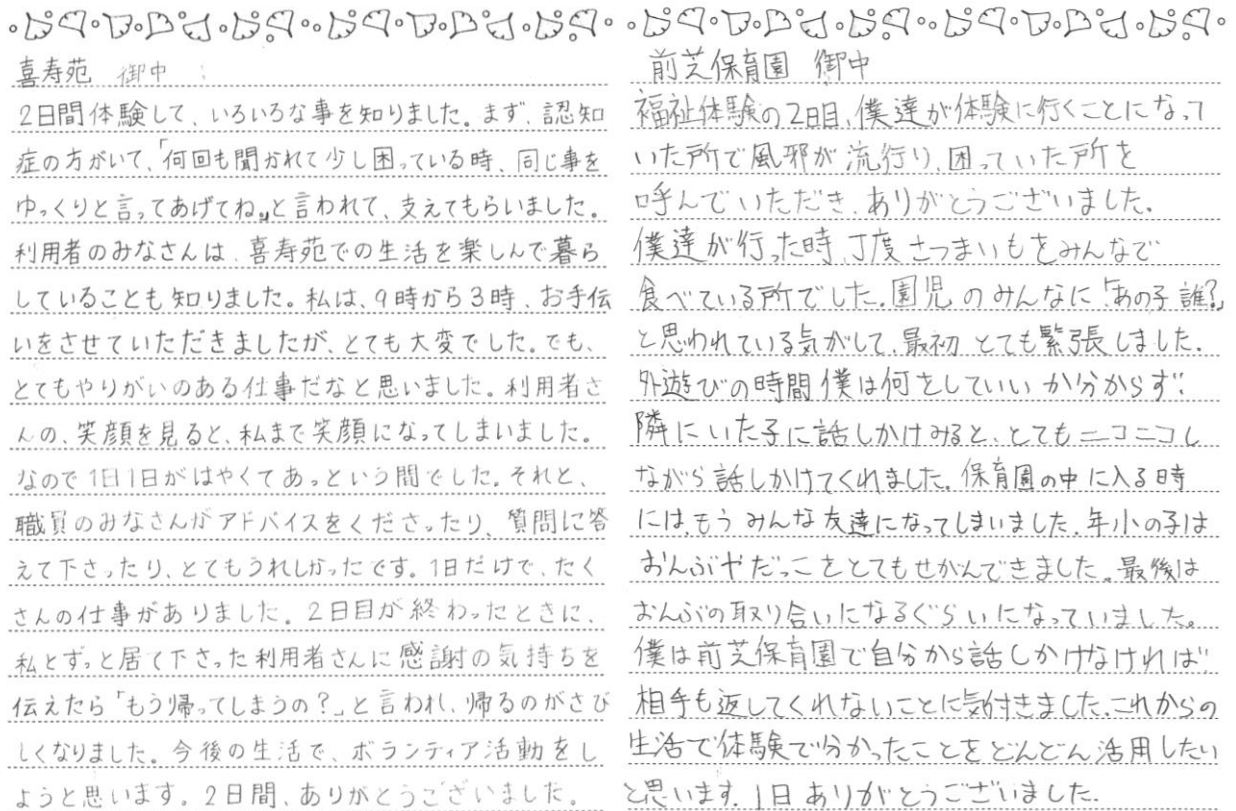 喜寿苑 御中
2日間体験して、いろいろな事を知りました。まず、認知
症の方がいて、「何回も聞かれて少し困っている時、同じ事を
ゆっくりと言ってあげてね。」と言われて、支えてもらいました。
利用者のみなさんは、喜寿苑での生活を楽しんで暮ら
していることも知りました。私は、9時から3時、お手伝
いをさせていただきましたが、とても大変でした。でも、
とてもやりがいのある仕事だなと思いました。利用者さ
んの、笑顔を見ると、私まで笑顔になってしまいました。
なので1日1日がはやくてあっという間でした。それと、
職員のみなさんがアドバイスをくださったり、質問に答
えて下さったり、とてもうれしかったです。1日だけで、たく
さんの仕事がありました。2日目が終わったときに、
私とずっと居て下さった利用者さんに感謝の気持ちを
伝えたら「もう帰ってしまうの?」と言われ、帰るのがさび
しくなりました。今後の生活で、ボランティア活動をし
ようと思います。2日間、ありがとうございました。
前芝保育園 御中
福祉体験の2日目、僕達が体験に行くことになって
いた所で風邪が流行り、困っていた所を
呼んでいただき、ありがとうございました。
僕達が行った時、丁度さつまいもをみんなで
食べている所でした。園児のみんなに「あの子誰?」
と思われている気がして、最初とても緊張しました。
外遊びの時間僕は何をしていいか分からず、
隣にいた子に話しかけみると、とてもニコニコし
ながら話しかけてくれました。保育園の中に入る時
には、もうみんな友達になってしまいました。年小の子は
おんぶやだっこをとてもせがんできました。最後は
おんぶの取り合いになるぐらいになっていました。
僕は前芝保育園で自分から話しかけなければ
相手も返してくれないことに気付きました。これからの
生活で体験で分かったことをどんどん活用したい
と思います。1日ありがとうございました。